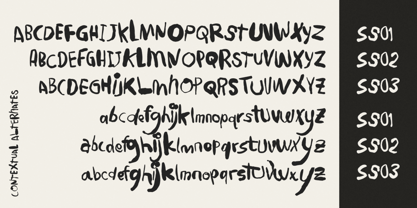 ABCDEFGHIJKLMNOPQRSTUVWXYZ SS01
ABCDEFGHIJKLMNOPQRSTUVWXYZ SS02
ABCDEGHijKLmhOPQRSTUVWXYZ SS03
abcdefghijklmnopqrstuvwxyz SS01
abcdefghijklmnopqrstuvwxyz SS02
abcdefghijklmnopqrstuvwxyz SS03
CONTEXTUAL ALTERNATES